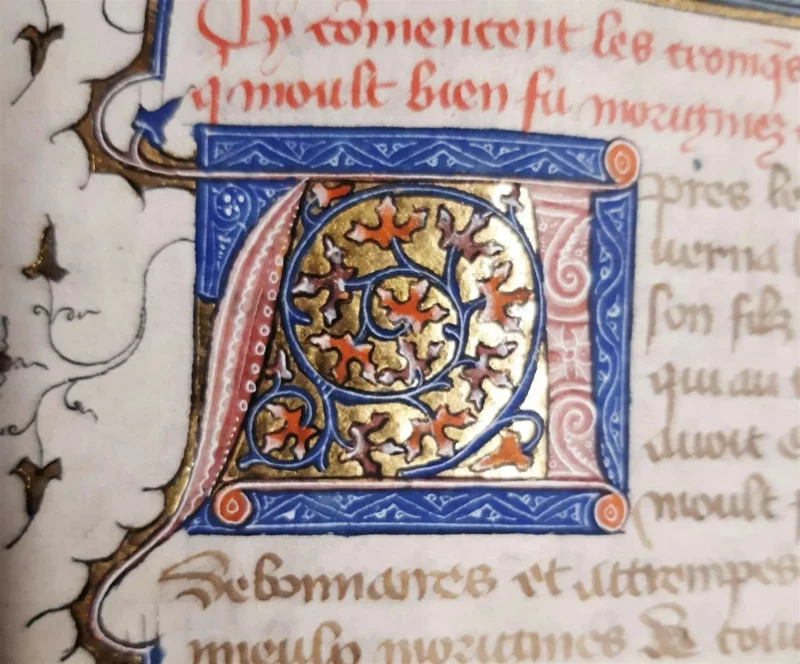 Cy cōmencent les cronīqs
q moult bien fu moriginez
Apres le
uerna l
son filz
qui au
auoit e
moult
debonnaires et attrempes
mieulx morigines